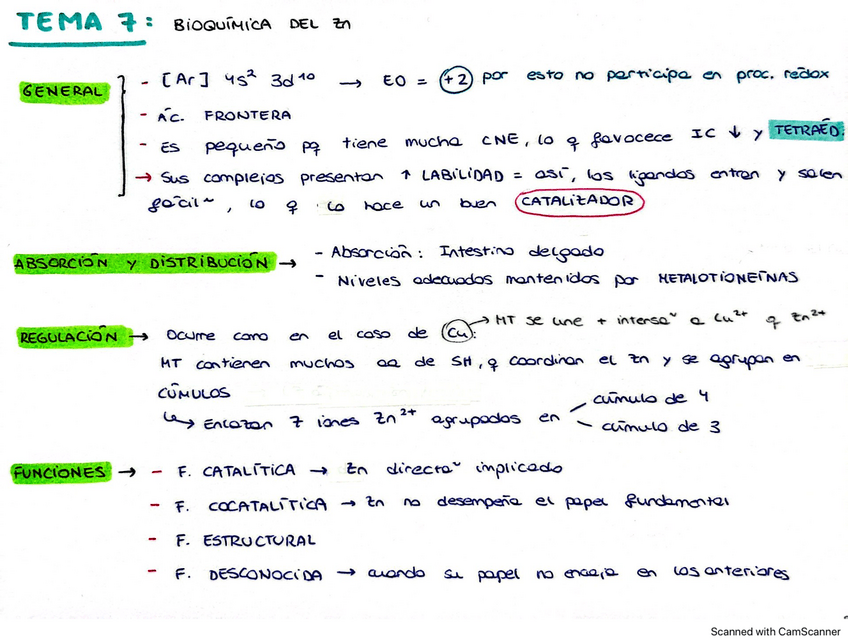 TEMA 7: BIOQUÍMICA DEL Zn
GENERAL
- [Ar] 4s² 3d¹⁰ → EO = +2 por esto no participa en proc. redox
- ÁC. FRONTERA
- Es pequeño pq tiene mucha CNE, lo q favocece IC ↓ y TETRAÉD.
→ Sus complejos presentan ↑ LABILIDAD = así, los ligandos entran y salen
fácil~, lo q lo hace un buen CATALIZADOR
ABSORCIÓN y DISTRIBUCIÓN →
- Absorción: Intestino delgado
- Niveles adecuados mantenidos por METALOTIONEÍNAS
REGULACIÓN → Ocurre como en el caso de Cu: → MT se une + intensa~ a Cu²⁺ q Zn²⁺
MT contienen muchos aa de SH, q coordinan el Zn y se agrupan en
CÚMULOS
↳ Enlazan 7 iones Zn²⁺ agrupados en
cúmulo de 4
cúmulo de 3
FUNCIONES → - F. CATALÍTICA → Zn directa~ implicado
- F. COCATALÍTICA → Zn no desempeña el papel fundamental
- F. ESTRUCTURAL
- F. DESCONOCIDA → cuando su papel no encaja en los anteriores
Scanned with CamScanner